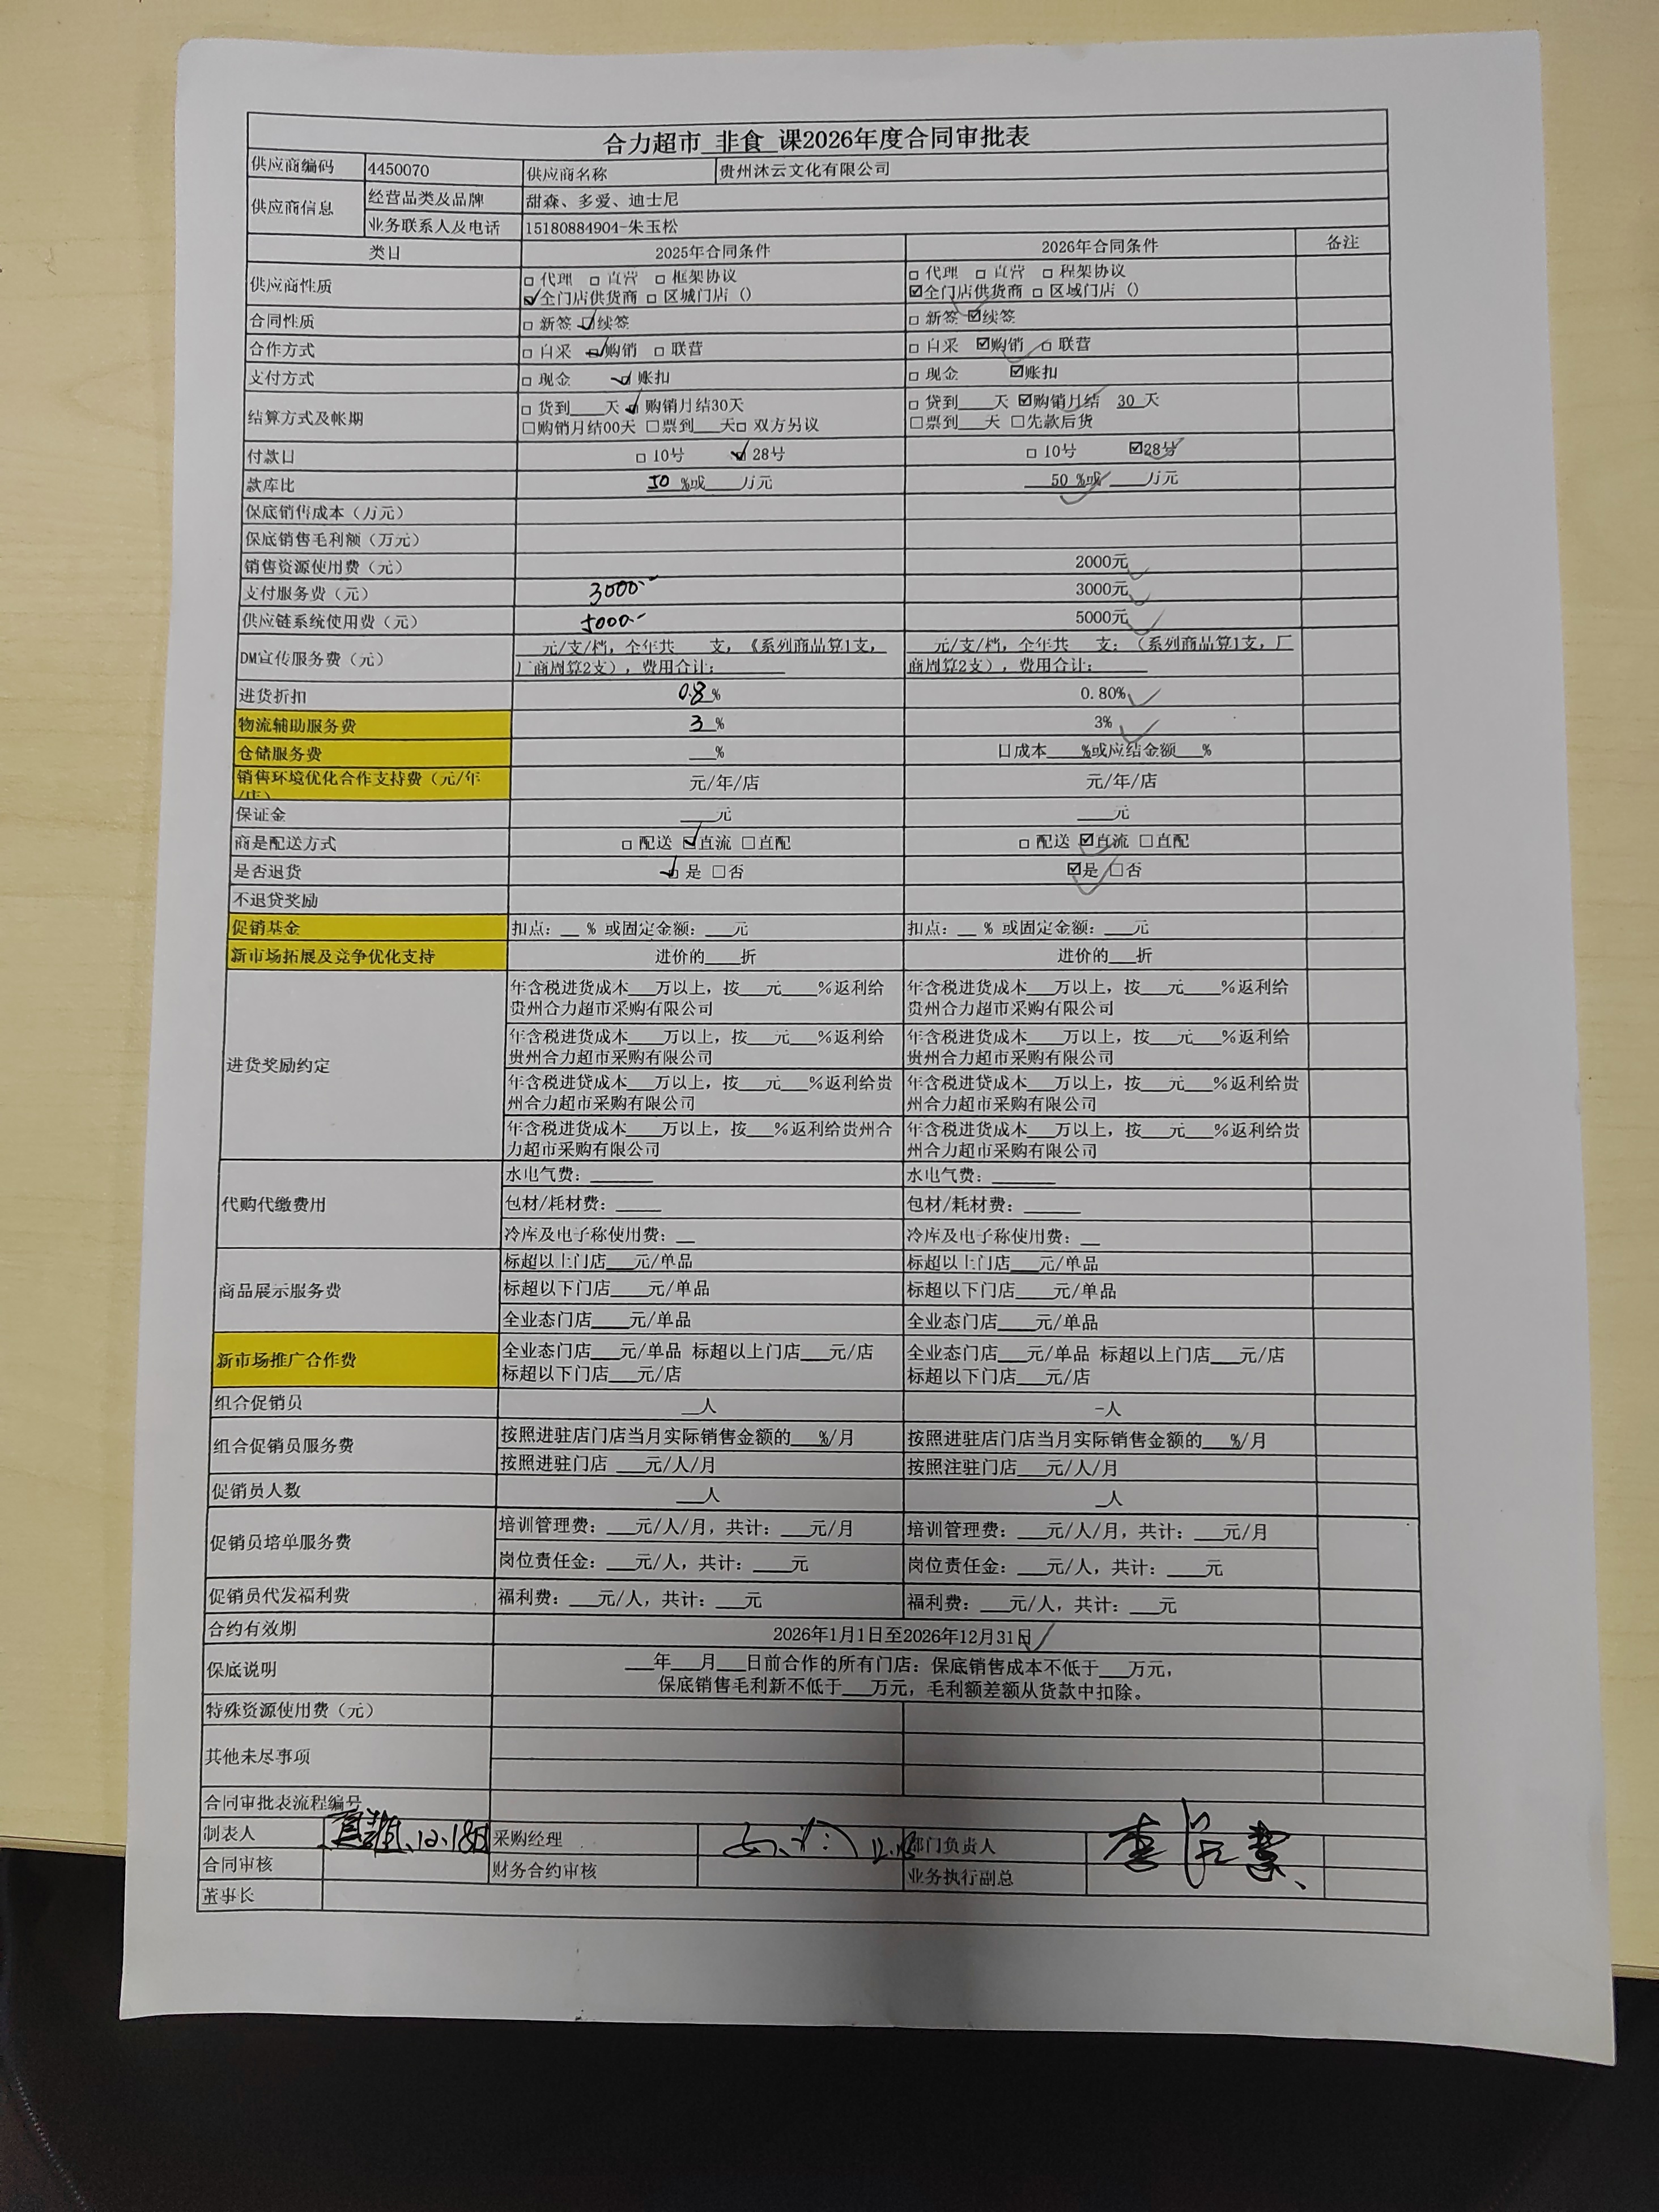 合力超市 非食 课2026年度合同审批表
供应商编码 4450070 供应商名称 贵州沐云文化有限公司
供应商信息 经营品类及品牌 甜森、多爱、迪士尼
业务联系人及电话 15180884904-朱玉松
类目 2025年合同条件 2026年合同条件 备注
供应商性质 □ 代理 □ 直营 □ 框架协议 □ 代理 □ 直营 □ 程架协议
☑全门店供货商 □ 区城门店 () ☑全门店供货商 □ 区域门店 ()
合同性质 □ 新签 ☑续签 □ 新签 ☑续签
合作方式 □ 自采 ☑购销 □ 联营 □ 自采 ☑购销 □ 联营
支付方式 □ 现金 ☑账扣 □ 现金 ☑账扣
结算方式及帐期 □ 货到___天 ☑ 购销月结30天 □ 贷到___天 ☑购销月结 30 天
□购销月结00天 □票到___天□ 双方另议 □票到___天 □先款后货
付款日 □ 10号 ☑28号 □ 10号 ☑28号
款库比 50 %或___万元 50 %或___万元
保底销售成本（万元）
保底销售毛利额（万元）
销售资源使用费（元） 2000元
支付服务费（元） 3000.- 3000元
供应链系统使用费（元） 5000.- 5000元
DM宣传服务费（元） __元/支/档，全年共__支，《系列商品算1支， __元/支/档，全年共__支；（系列商品算1支，厂
厂商周算2支），费用合计：______ 商周算2支），费用合计：______
进货折扣 0.8 % 0.80%
物流辅助服务费 3 % 3%
仓储服务费 __% 口成本___%或应结金额___%
销售环境优化合作支持费（元/年 元/年/店 元/年/店
/店）
保证金 ___元 ___元
商是配送方式 □ 配送 ☑直流 □直配 □ 配送 ☑直流 □直配
是否退货 ☑ 是 □否 ☑是 □否
不退贷奖励
促销基金 扣点：__ % 或固定金额：___元 扣点：__ % 或固定金额：___元
新市场拓展及竞争优化支持 进价的___折 进价的___折
进货奖励约定 年含税进货成本___万以上，按___元____%返利给 年含税进货成本___万以上，按___元____%返利给
贵州合力超市采购有限公司 贵州合力超市采购有限公司
年含税进货成本___万以上，按___元___%返利给 年含税进货成本___万以上，按___元___%返利给
贵州合力超市采购有限公司 贵州合力超市采购有限公司
年含税进贷成本___万以上，按___元___%返利给贵 年含税进贷成本___万以上，按___元___%返利给贵
州合力超市采购有限公司 州合力超市采购有限公司
年含税进货成本____万以上，按___%返利给贵州合 年含税进货成本___万以上，按___元___%返利给贵
力超市采购有限公司 州合力超市采购有限公司
代购代缴费用 水电气费：______ 水电气费：______
包材/耗材费：____ 包材/耗材费：_____
冷库及电子称使用费：__ 冷库及电子称使用费：__
商品展示服务费 标超以上门店___元/单品 标超以上门店___元/单品
标超以下门店____元/单品 标超以下门店____元/单品
全业态门店____元/单品 全业态门店____元/单品
新市场推广合作费 全业态门店___元/单品 标超以上门店___元/店 全业态门店___元/单品 标超以上门店___元/店
标超以下门店___元/店 标超以下门店___元/店
组合促销员 __人 -人
组合促销员服务费 按照进驻店门店当月实际销售金额的___%/月 按照进驻店门店当月实际销售金额的___%/月
按照进驻门店 ___元/人/月 按照注驻门店___元/人/月
促销员人数 ___人 __人
促销员培单服务费 培训管理费：___元/人/月，共计：___元/月 培训管理费：___元/人/月，共计：___元/月
岗位责任金：___元/人，共计：____元 岗位责任金：___元/人，共计：____元
促销员代发福利费 福利费：___元/人，共计：___元 福利费：___元/人，共计：___元
合约有效期 2026年1月1日至2026年12月31日
保底说明 ___年___月___日前合作的所有门店：保底销售成本不低于___万元，
保底销售毛利新不低于___万元，毛利额差额从货款中扣除。
特殊资源使用费（元）
其他未尽事项
合同审批表流程编号
制表人 12.18 采购经理 12.18 部门负责人
合同审核 财务合约审核 业务执行副总
董事长